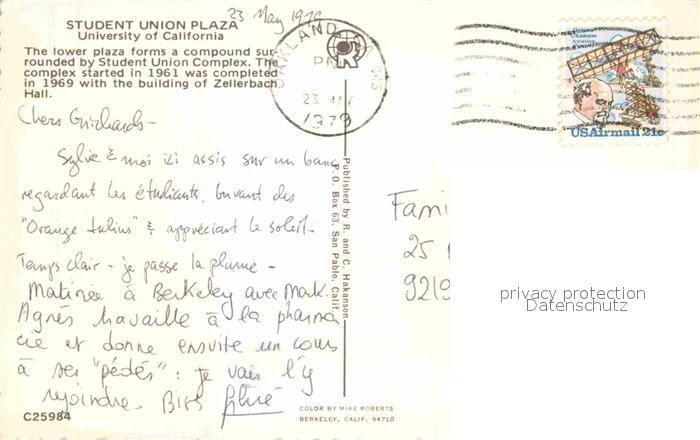 23 May 1979
STUDENT UNION PLAZA
University of California
The lower plaza forms a compound sur-
rounded by Student Union Complex. The
complex started in 1961 was completed
in 1969 with the building of Zellerbach
Hall.
OAKLAND, CA
PM
23 MAY
1979
USAirmail 21c
Chers
Sylvie & moi ici assis sur un banc
regardant les étudiants, buvant des
"Orange Julius" & appréciant le soleil-
Temps clair - je passe la plume -
Matinée à Berkeley avec Mark.
Agnès travaille à la pharma
cie et donne ensuite un cours
à ses "pédés": je vais l'y
rejoindre. Bises
Published by R. and C. Hakanson
P.O. Box 63, San Pablo, Calif.
Fami
25
9219
privacy protection
Datenschutz
C25984
COLOR BY MIKE ROBERTS
BERKELEY, CALIF. 94710